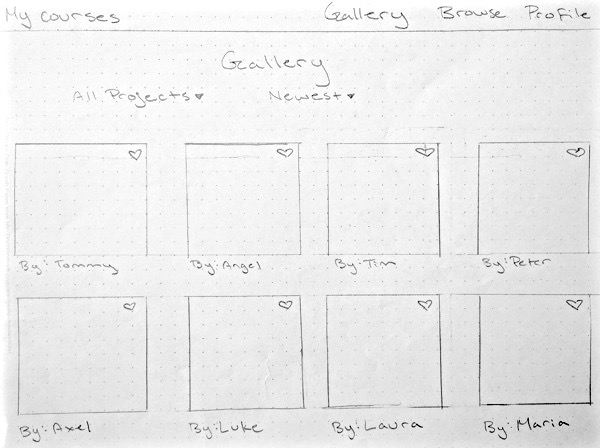 My courses Gallery Browse Profile
Gallery
All Projects Newest
By: Tommy By: Angel By: Tim By: Peter
By: Axel By: Luke By: Laura By: Maria